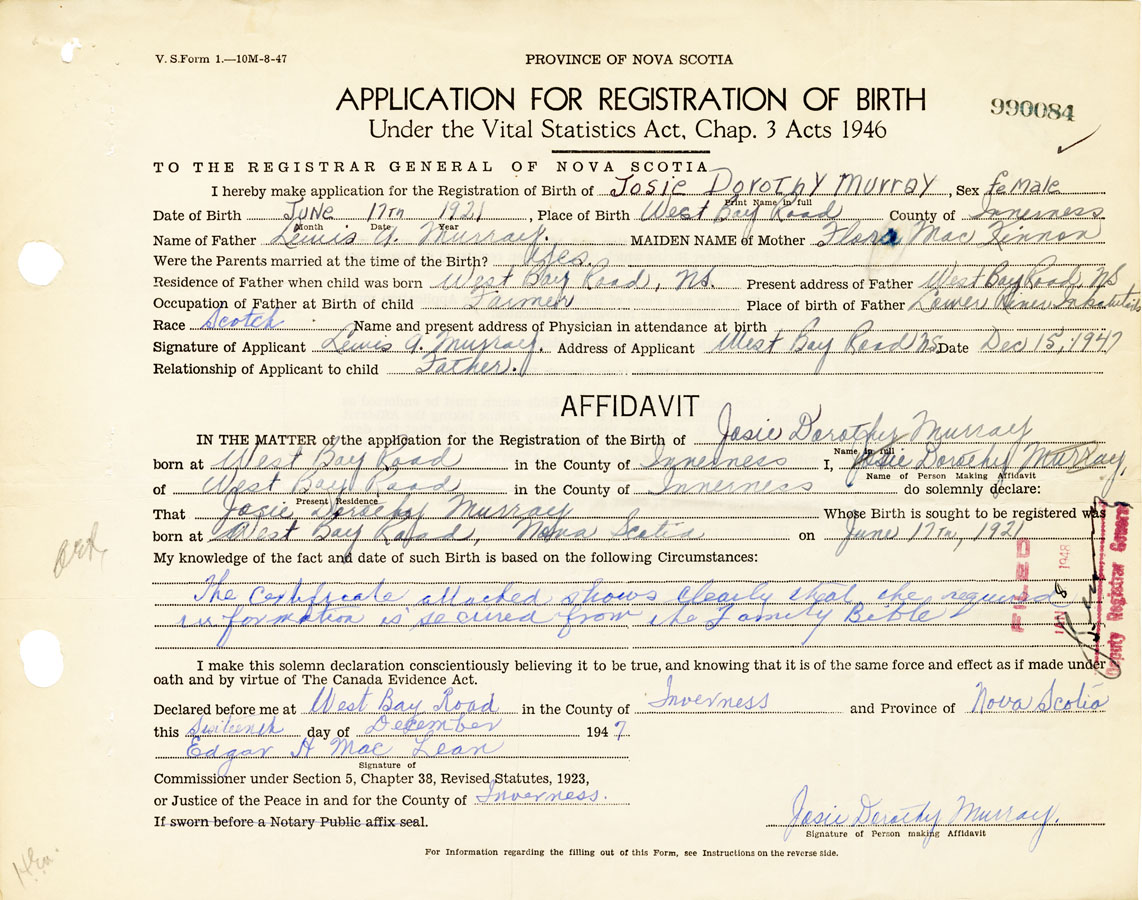 V. S.Form 1.—10M-8-47
PROVINCE OF NOVA SCOTIA
APPLICATION FOR REGISTRATION OF BIRTH
990084
Under the Vital Statistics Act, Chap. 3 Acts 1946
TO THE REGISTRAR GENERAL OF NOVA SCOTIA
I hereby make application for the Registration of Birth of Josie Dorothy Murray, Sex female
Print Name in full
Date of Birth June 17th 1921, Place of Birth West Bay Road County of Innerness
Month Date Year
Name of Father Lewis A. Murray. MAIDEN NAME of Mother Flora Mac Kinnon
Were the Parents married at the time of the Birth? Yes.
Residence of Father when child was born West Bay Road, NS. Present address of Father West Bay Road, NS
Occupation of Father at Birth of child Farmer Place of birth of Father Lower River Inhabitants
Race Scotch Name and present address of Physician in attendance at birth
Signature of Applicant Lewis A. Murray. Address of Applicant West Bay Road NS Date Dec 15, 1947
Relationship of Applicant to child Father.
AFFIDAVIT
IN THE MATTER of the application for the Registration of the Birth of Josie Dorothy Murray
Name in full
born at West Bay Road in the County of Innerness I, Josie Dorothy Murray,
Name of Person Making Affidavit
of West Bay Road in the County of Innerness do solemnly declare:
Present Residence
That Josie Dorothy Murray Whose Birth is sought to be registered was
born at West Bay Road, Nova Scotia on June 17th, 1921
My knowledge of the fact and date of such Birth is based on the following Circumstances:
The certificate attached shows clearly that the required
information is secured from the Family Bible
FILED
JAN 8 1948
Deputy Registrar General
I make this solemn declaration conscientiously believing it to be true, and knowing that it is of the same force and effect as if made under
oath and by virtue of The Canada Evidence Act.
Declared before me at West Bay Road in the County of Inverness and Province of Nova Scotia
this Sixteenth day of December 1947
Edgar H Mac Lean
Signature of
Commissioner under Section 5, Chapter 38, Revised Statutes, 1923,
or Justice of the Peace in and for the County of Inverness.
If sworn before a Notary Public affix seal.
Josie Dorothy Murray.
Signature of Person making Affidavit
For Information regarding the filling out of this Form, see Instructions on the reverse side.